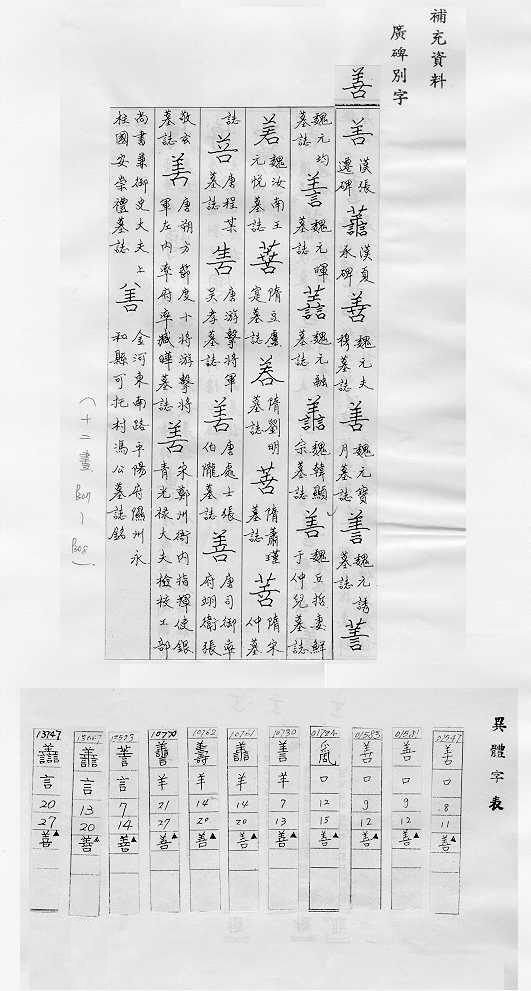 補充資料
廣碑別字
善
善 漢張遷碑 譱 漢夏承碑 善 魏元夫穆墓誌 善 魏元寶月墓誌 善 魏元誘墓誌
魏元均墓誌 魏元暉墓誌 魏元融墓誌 魏韓顯宗墓誌 善 魏丘哲妻鮮于仲兒墓誌
魏汝南王元悅墓誌 隋立盧寔墓誌 隋劉明墓誌 隋蕭瑾墓誌 隋宋仲墓
誌 唐程某墓誌 唐游擊將軍吳孝墓誌 善 唐處士張伯隴墓誌 善 唐司御率府翊衛張
敬玄墓誌 善 唐朔方節度十將游擊將軍左內率府率臧曄墓誌 善 宋鄭州衙內指揮使銀青光祿大夫檢校工部
尚書兼御史大夫上柱國安崇禮墓誌 金河東南路平陽府隰州永和縣可托村馮公墓誌銘
(十二畫 Bon) Bos)
異體字表
01547 口 8 11 善▲
01581 善 口 9 12 善▲
01583 善 口 9 12 善▲
01724 口 12 15 善▲
10730 善 羊 7 13 善▲
10761 羊 14 20 善▲
10762 羊 14 20 善▲
10770 羊 21 27 善▲
13593 言 7 14 善▲
13667 譱 言 13 20 善▲
13747 言 20 27 善▲